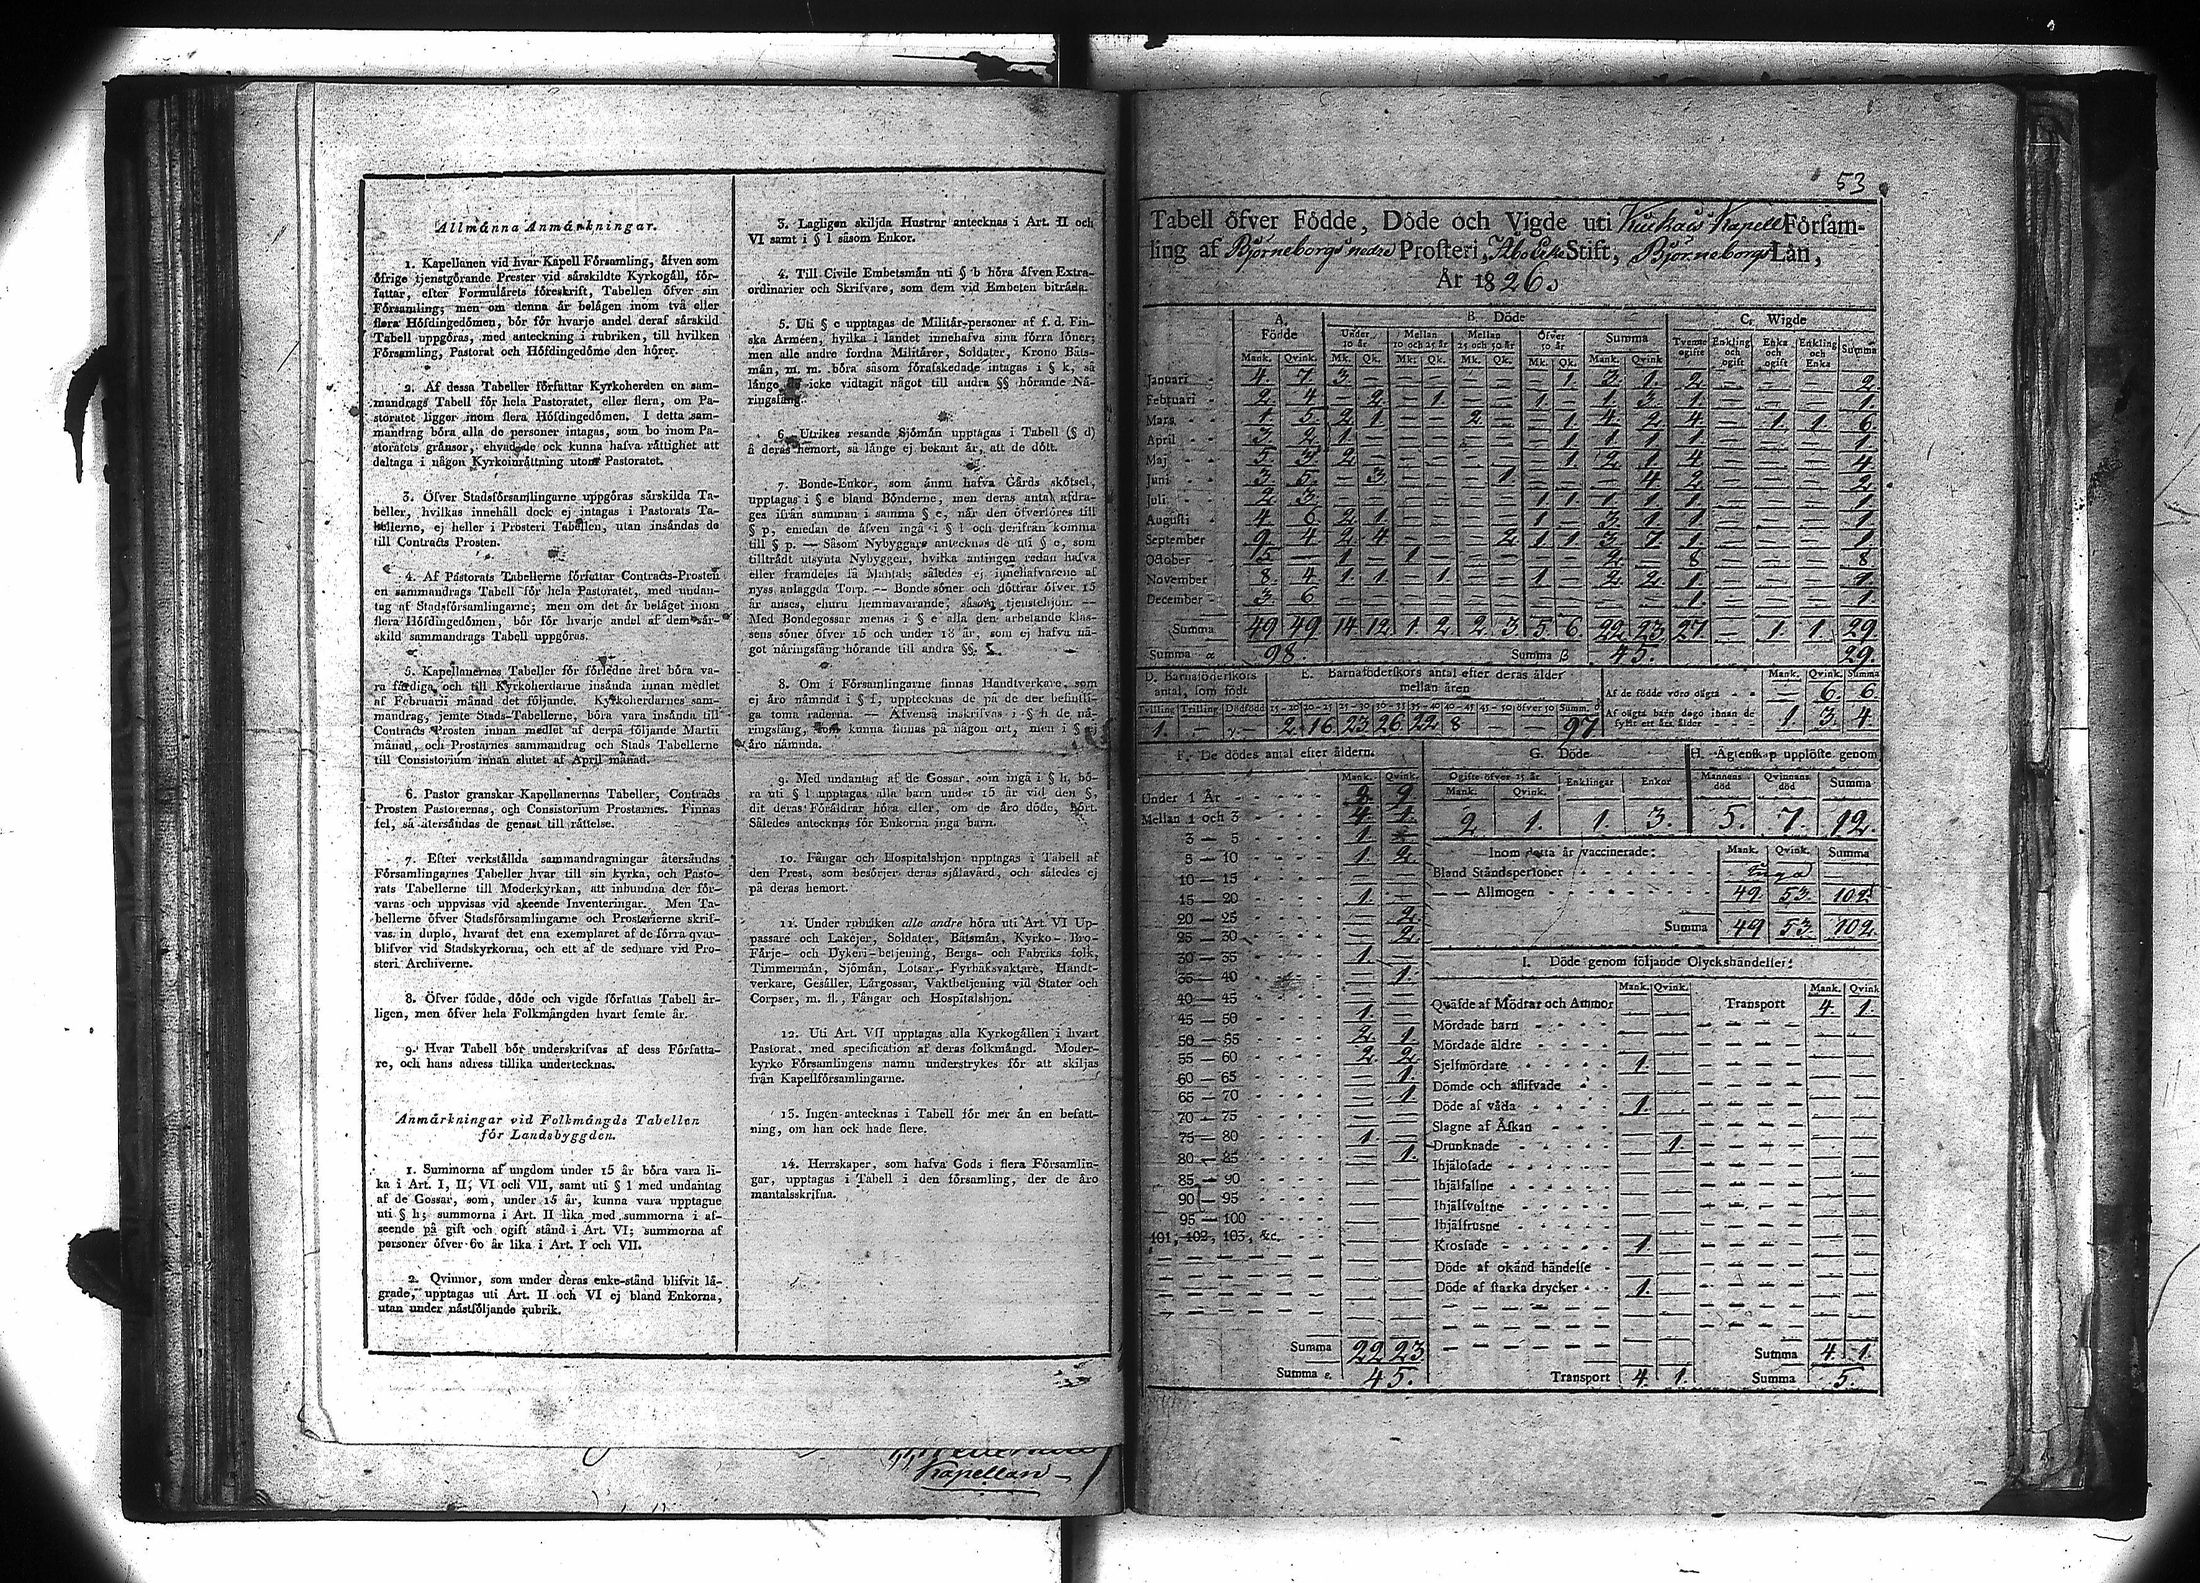 Allmånna Anmårkningar.
1. Kapellanen vid hvar Kapell Församling, åfven som
öfrige tjenstgörande Prester vid sårskildte Kyrkogåll, för-
fattar, efter Formulårets föreskrift, Tabellen öfver sin
Församling; men om denna år belågen inom två eller
flera Höfdingedömen, bör för hvarje andel deraf sårskild
Tabell uppgöras, med anteckning i rubriken, till hvilken
Församling, Pastorat och Höfdingedöme den hörer.
2. Af dessa Tabeller författar Kyrkoherden en sam-
mandrags Tabell för hela Pastoratet, eller flera, om Pa-
storatet ligger inom flera Höfdingedömen. I detta sam-
mandrag böra alla de personer intagas, som bo inom Pa-
storatets grånsor, ehvad de ock kunna hafva råttighet att
deltaga i någon Kyrkoinråttning utom Pastoratet.
3. Öfver Stadsförsamlingarne uppgöras sårskilda Ta-
beller, hvilkas innehåll dock ej intagas i Pastorats Ta-
bellerne, ej heller i Prosteri Tabellen, utan insåndas de
till Contracts Prosten.
4. Af Pastorats Tabellerne författar Contracts-Prosten
en sammandrags Tabell för hela Pastoratet, med undan-
tag af Stadsförsamlingarne; men om det år belåget inom
flera Höfdingedömen, bör för hvarje andel af dem sår-
skild sammandrags Tabell uppgöras.
5. Kapellanernes Tabeller för förledne året böra va-
ra fårdiga och till Kyrkoherdarne insånda innan medlet
af Februarii månad det följande. Kyrkoherdarnes sam-
mandrag, jemte Stads-Tabellerne, böra vara insånda till
Contracts Prosten innan medlet af derpå följande Martii
månad, och Prostarnes sammandrag och Stads Tabellerne
till Consistorium innan slutet af April månad.
6. Pastor granskar Kapellanernas Tabeller, Contracts
Prosten Pastorernas, och Consistorium Prostarnes. Finnas
fel, så återsåndas de genast till råttelse.
7. Efter verkstållda sammandragningar återsåndas
Församlingarnes Tabeller hvar till sin kyrka, och Pasto-
rats Tabellerne till Moderkyrkan, att inbundna der för-
varas och uppvisas vid skeende Inventeringar. Men Ta-
bellerne öfver Stadsförsamlingarne och Prosterierne skrif-
vas in duplo, hvaraf det ena exemplaret af de förra qvar-
blifver vid Stadskyrkorna, och ett af de sednare vid Pro-
steri Archiverne.
8. Öfver födde, döde och vigde författas Tabell år-
ligen, men öfver hela Folkmången hvart femte år.
9. Hvar Tabell bör underskrifvas af dess Författa-
re, och hans adress tillika undertecknas.
Anmårkningar vid Folkmångds Tabellen
för Landsbyggden.
1. Summorna af ungdom under 15 år böra vara li-
ka i Art. I, II, VI och VII, samt uti § l med undantag
af de Gossar, som, under 15 år, kunna vara upptagne
uti § h; summorna i Art. II lika med summorna i af-
seende på gift och ogift stånd i Art. VI; summorna af
personer öfver 60 år lika i Art. I och VII.
2. Qvinnor, som under deras enke-stånd blifvit lå-
grade, upptagas uti Art. II och VI ej bland Enkorna,
utan under nåstföljande rubrik.
3. Lagligen skiljda Hustrur antecknas i Art. II och
VI samt i § l såsom Enkor.
4. Till Civile Embetsmån uti § b höra åfven Extra-
ordinarier och Skrifvare, som dem vid Embeten bitråda.
5. Uti § c upptagas de Militår-personer af f. d. Fin-
ska Arméen, hvilka i landet innehafva sina förra löner;
men alle andre fordna Militårer, Soldater, Krono Båts-
mån, m. m. böra såsom förafskedade intagas i § k, så
långe de icke vidtagit något till andra §§ hörande Nå-
ringsfång.
6. Utrikes resande Sjömån upptagas i Tabell (§ d)
å deras hemort, så långe ej bekant år, att de dött.
7. Bonde-Enkor, som ånnu hafva Gårds skötsel,
upptagas i § e bland Bönderne, men deras antal afdra-
ges ifrån summan i samma § e, når den öfverföres till
§ p, emedan de åfven ingå i § l och derifrån komma
till § p. — Såsom Nybyggare antecknas de uti § e, som
tilltrådt utsynta Nybyggen, hvilka antingen redan hafva
eller framdeles få Mantal; således ej innehafvarene af
nyss anlaggda Torp. — Bonde söner och döttrar öfver 15
år anses, ehuru hemmavarande, såsom tjenstehjon. —
Med Bondegossar menas i § e alla den arbetande klas-
sens söner öfver 15 och under 18 år, som ej hafva nå-
got nåringsfång hörande till andra §§.
8. Om i Församlingarne finnas Handtverkare, som
ej åro nåmnda i § f, upptecknas de på de der befintli-
ga toma raderna. — Åfvenså inskrifvas i § h de nå-
ringsfång, som kunna finnas på någon ort, men i § ej
åro nåmnda.
9. Med undantag af de Gossar, som ingå i § h, bö-
ra uti § l upptagas alla barn under 15 år vid den §,
dit deras Föråldrar höra eller, om de åro döde, hört.
Således antecknas för Enkorna inga barn.
10. Fångar och Hospitalshjon upptagas i Tabell af
den Prest, som besörjer deras sjålavård, och således ej
på deras hemort.
11. Under rubriken alle andre höra uti Art. VI Up-
passare och Lakejer, Soldater, Båtsmån, Kyrko- Bro-
Fårje- och Dykeri-betjening, Bergs- och Fabriks folk,
Timmermån, Sjömån, Lotsar, Fyrbåksvaktare, Handt-
verkare, Gesåller, Lårgossar, Vaktbetjening vid Stater och
Corpser, m. fl., Fångar och Hospitalshjon.
12. Uti Art. VII upptagas alla Kyrkogållen i hvart
Pastorat, med specification af deras folkmångd. Moder-
kyrko Församlingens namn understrykes för att skiljas
från Kapellförsamlingarne.
13. Ingen antecknas i Tabell för mer ån en befatt-
ning, om han ock hade flere.
14. Herrskaper, som hafva Gods i flera Församlin-
gar, upptagas i Tabell i den församling, der de åro
mantalsskrifna.
Kapellan
53
Tabell öfver Födde, Döde och Vigde uti Kiukais Kapell Församling
af Björneborgs nedre Prosteri, Åbo Erke Stift, Björneborgs Län,
År 1826.
A. Födde B. Döde C. Wigde
Under 10 år Mellan 10 och 25 år Mellan 25 och 50 år Öfver 50 år Summa Tvenne ogifte Enkling och ogift Enka och ogift Enkling och Enka Summa
Mank. Qvink. Mk. Qk. Mk. Qk. Mk. Qk. Mk. Qk. Mank. Qvink
Januari 4 7 3 — — — — — — 1 3 1 2 — — — 2
Februari 2 4 — 2 — 1 — — 1 — 1 3 1 — — — 1
Mars 1 5 2 1 — — 2 — — 1 4 2 4 — 1 1 6
April 3 2 1 — — — — — — 1 1 1 1 — — — 1
Maj 5 3 2 — — — — — — 1 2 1 4 — — — 4
Juni 3 5 — 3 — — — 1 — — — 4 2 — — — 2
Juli 2 3 — — — — — — 1 1 1 1 1 — — — 1
Augusti 4 6 2 1 — — — — 1 — 3 1 1 — — — 1
September 9 4 2 4 — — — 2 1 1 3 7 1 — — — 1
October 5 — 1 — 1 — — — — — 2 — 8 — — — 8
November 8 4 1 1 — 1 — — 1 — 2 2 1 — — — 1
December 3 6 1 — — — 1
Summa 49 49 14 12 1 2 2 3 5 6 22 23 27 — 1 1 29
Summa α 98. Summa β 45. 29.
D. Barnsföderskors antal, som födt
Tvilling Trilling Dödfödd
1. — —
E. Barnsföderskors antal efter deras ålder mellan åren
15—20 20—25 25—30 30—35 35—40 40—45 45—50 öfver 50 Summ. δ
2 16 23 26 22 8 — — 97
Mank. Qvink. Summa
Af de födde voro oägta — 6. 6.
Af oägta barn dogo innan de fyllt ett års ålder 1. 3. 4.
F. De dödes antal efter åldern.
Mank. Qvink.
Under 1 År 8 9
Mellan 1 och 3 4 1
3 — 5 1 —
5 — 10 1 2
10 — 15 — —
15 — 20 1 —
20 — 25 — 2
25 — 30 — 2
30 — 35 1 —
35 — 40 — 1
40 — 45 — —
45 — 50 1 —
50 — 55 2 1
55 — 60 2 2
60 — 65 — 1
65 — 70 — 1
70 — 75 — —
75 — 80 1 —
80 — 85 — 1
85 — 90 — —
90 — 95 — —
95 — 100 — —
101, 102, 103, &c.
Summa 22 23
Summa ε. 45.
G. Döde
Ogifte öfver 15 år Enklingar Enkor
Mank. Qvink.
2. 1. 1. 3.
H. Ägtenskap upplöste genom
Mannens död Qvinnans död Summa
5. 7. 12.
Inom detta år vaccinerade: Mank. Qvink. Summa
Bland Ståndspersoner Inga —
— — Allmogen 49 53. 102
Summa 49 53. 102.
I. Döde genom följande Olyckshändelser:
Mank. Qvink. Mank. Qvink
Qväfde af Mödrar och Ammor — — Transport 4. 1.
Mördade barn — —
Mördade äldre — —
Sjelfmördare 1. —
Dömde och aflifvade — —
Döde af våda 1. —
Slagne af Åskan — —
Drunknade — 1.
Ihjälosade — —
Ihjälfallne — —
Ihjälsvultne — —
Ihjälfrusne — —
Krossade 1. —
Döde af okänd händelse — —
Döde af starka drycker 1. —
Summa 4. 1.
Transport 4. 1. Summa 5.